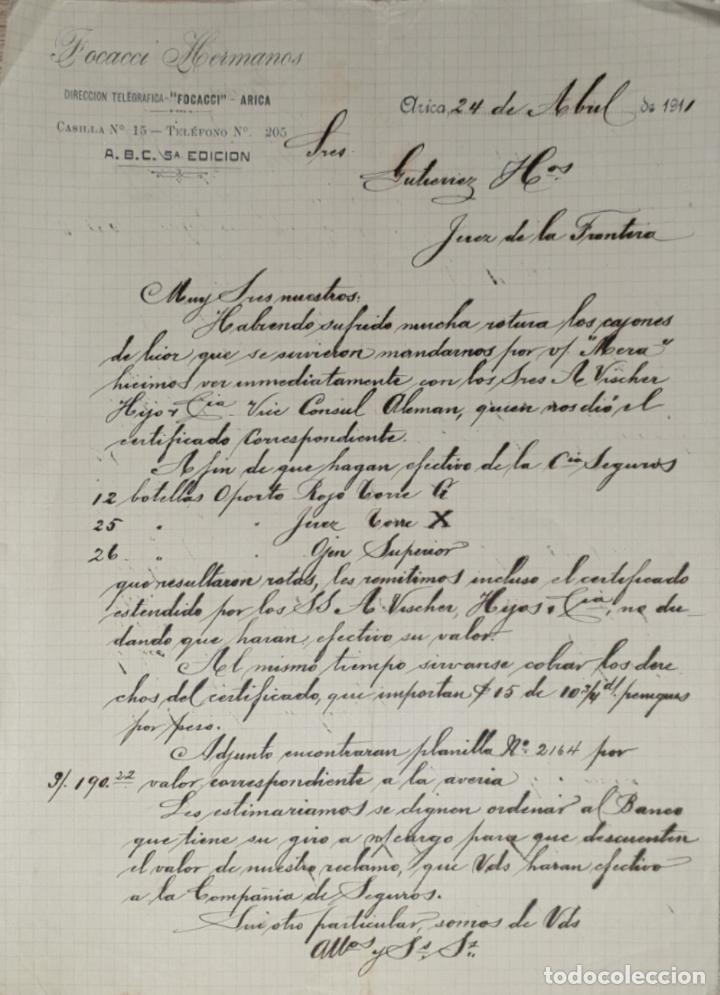 Focacci Hermanos
DIRECCION TELEGRAFICA-"FOCACCI"-ARICA
CASILLA Nº 15 — TELÉFONO Nº. 205
A.B.C. 5A EDICION
Arica, 24 de Abril de 1911
Sres
Gutierrez Hos.
Jerez de la Frontera
Muy Sres nuestros:
Habiendo sufrido mucha rotura los cajones
de licor que se sirvieron mandarnos por v/. "Mera"
hicimos ver inmediatamente con los Sres A. Vischer
Hijo & Cia. Vice Consul Aleman, quien nos dió el
certificado correspondiente.
A fin de que hagan efectivo de la Cia Seguros
12 botellas Oporto Rojo Torre G
25 " " Jerez Torre X
26 " " Ojen Superior
que resultaron rotas, les remitimos incluso el certificado
estendido por los SS A. Vischer, Hijos & Cia, no du-
dando que haran efectivo su valor.
Al mismo tiempo sirvanse cobrar los dere
chos del certificado, que importan $ 15 de 10 3/4 d/. peniques
por peso.
Adjunto encontraran planilla Nº. 2164 por
$/. 190.22 valor correspondiente a la averia
Les estimariamos se dignen ordenar al Banco
que tiene su giro a n/cargo para que descuenten
el valor de nuestro reclamo, que Vds haran efectivo
a la Compañia de Seguros.
Sin otro particular, somos de Vds
Attos y Ss. Ss.
todocoleccion